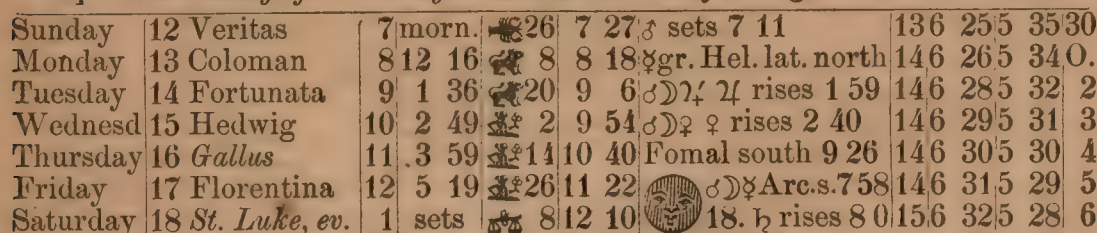 Sunday 12 Veritas 7 morn. 26 7 27 ♂ sets 7 11 13 6 25 5 35 30
Monday 13 Coloman 8 12 16 8 8 18 ☿ gr. Hel. lat. north 14 6 26 5 34 O.
Tuesday 14 Fortunata 9 1 36 20 9 6 ☌☽♃ ♃ rises 1 59 14 6 28 5 32 2
Wednesd 15 Hedwig 10 2 49 2 9 54 ☌☽♀ ♀ rises 2 40 14 6 29 5 31 3
Thursday 16 Gallus 11 3 59 14 10 40 Fomal south 9 26 14 6 30 5 30 4
Friday 17 Florentina 12 5 19 26 11 22 ☌☽☿ Arc. s. 7 58 14 6 31 5 29 5
Saturday 18 St. Luke, ev. 1 sets ♎ 8 12 10 18. ♄ rises 8 0 15 6 32 5 28 6